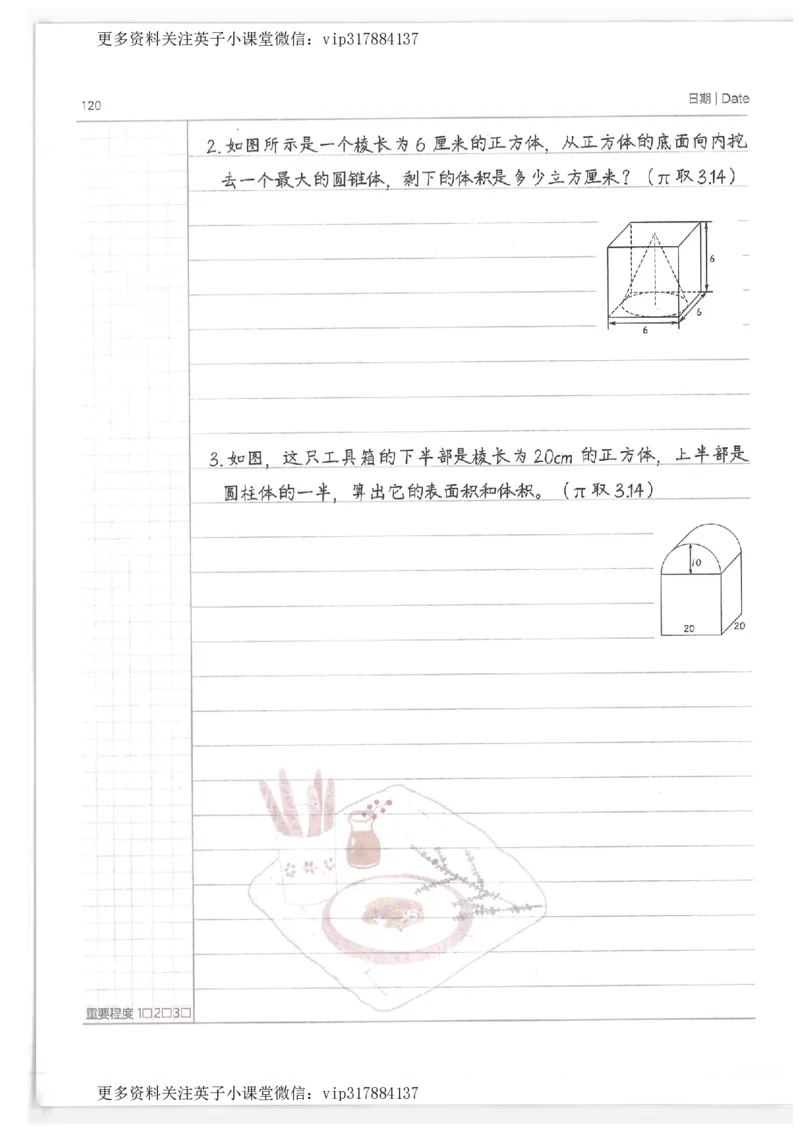 更多资料关注英子小课堂微信：vip317884137
120
日期 | Date
2.如图所示是一个棱长为6厘米的正方体，从正方体的底面向内挖
去一个最大的圆锥体，剩下的体积是多少立方厘米？（π取3.14）
6
6
6
3.如图，这只工具箱的下半部是棱长为20cm的正方体，上半部是
圆柱体的一半，算出它的表面积和体积。（π取3.14）
10
20
20
重要程度 1□2□3□
更多资料关注英子小课堂微信：vip317884137